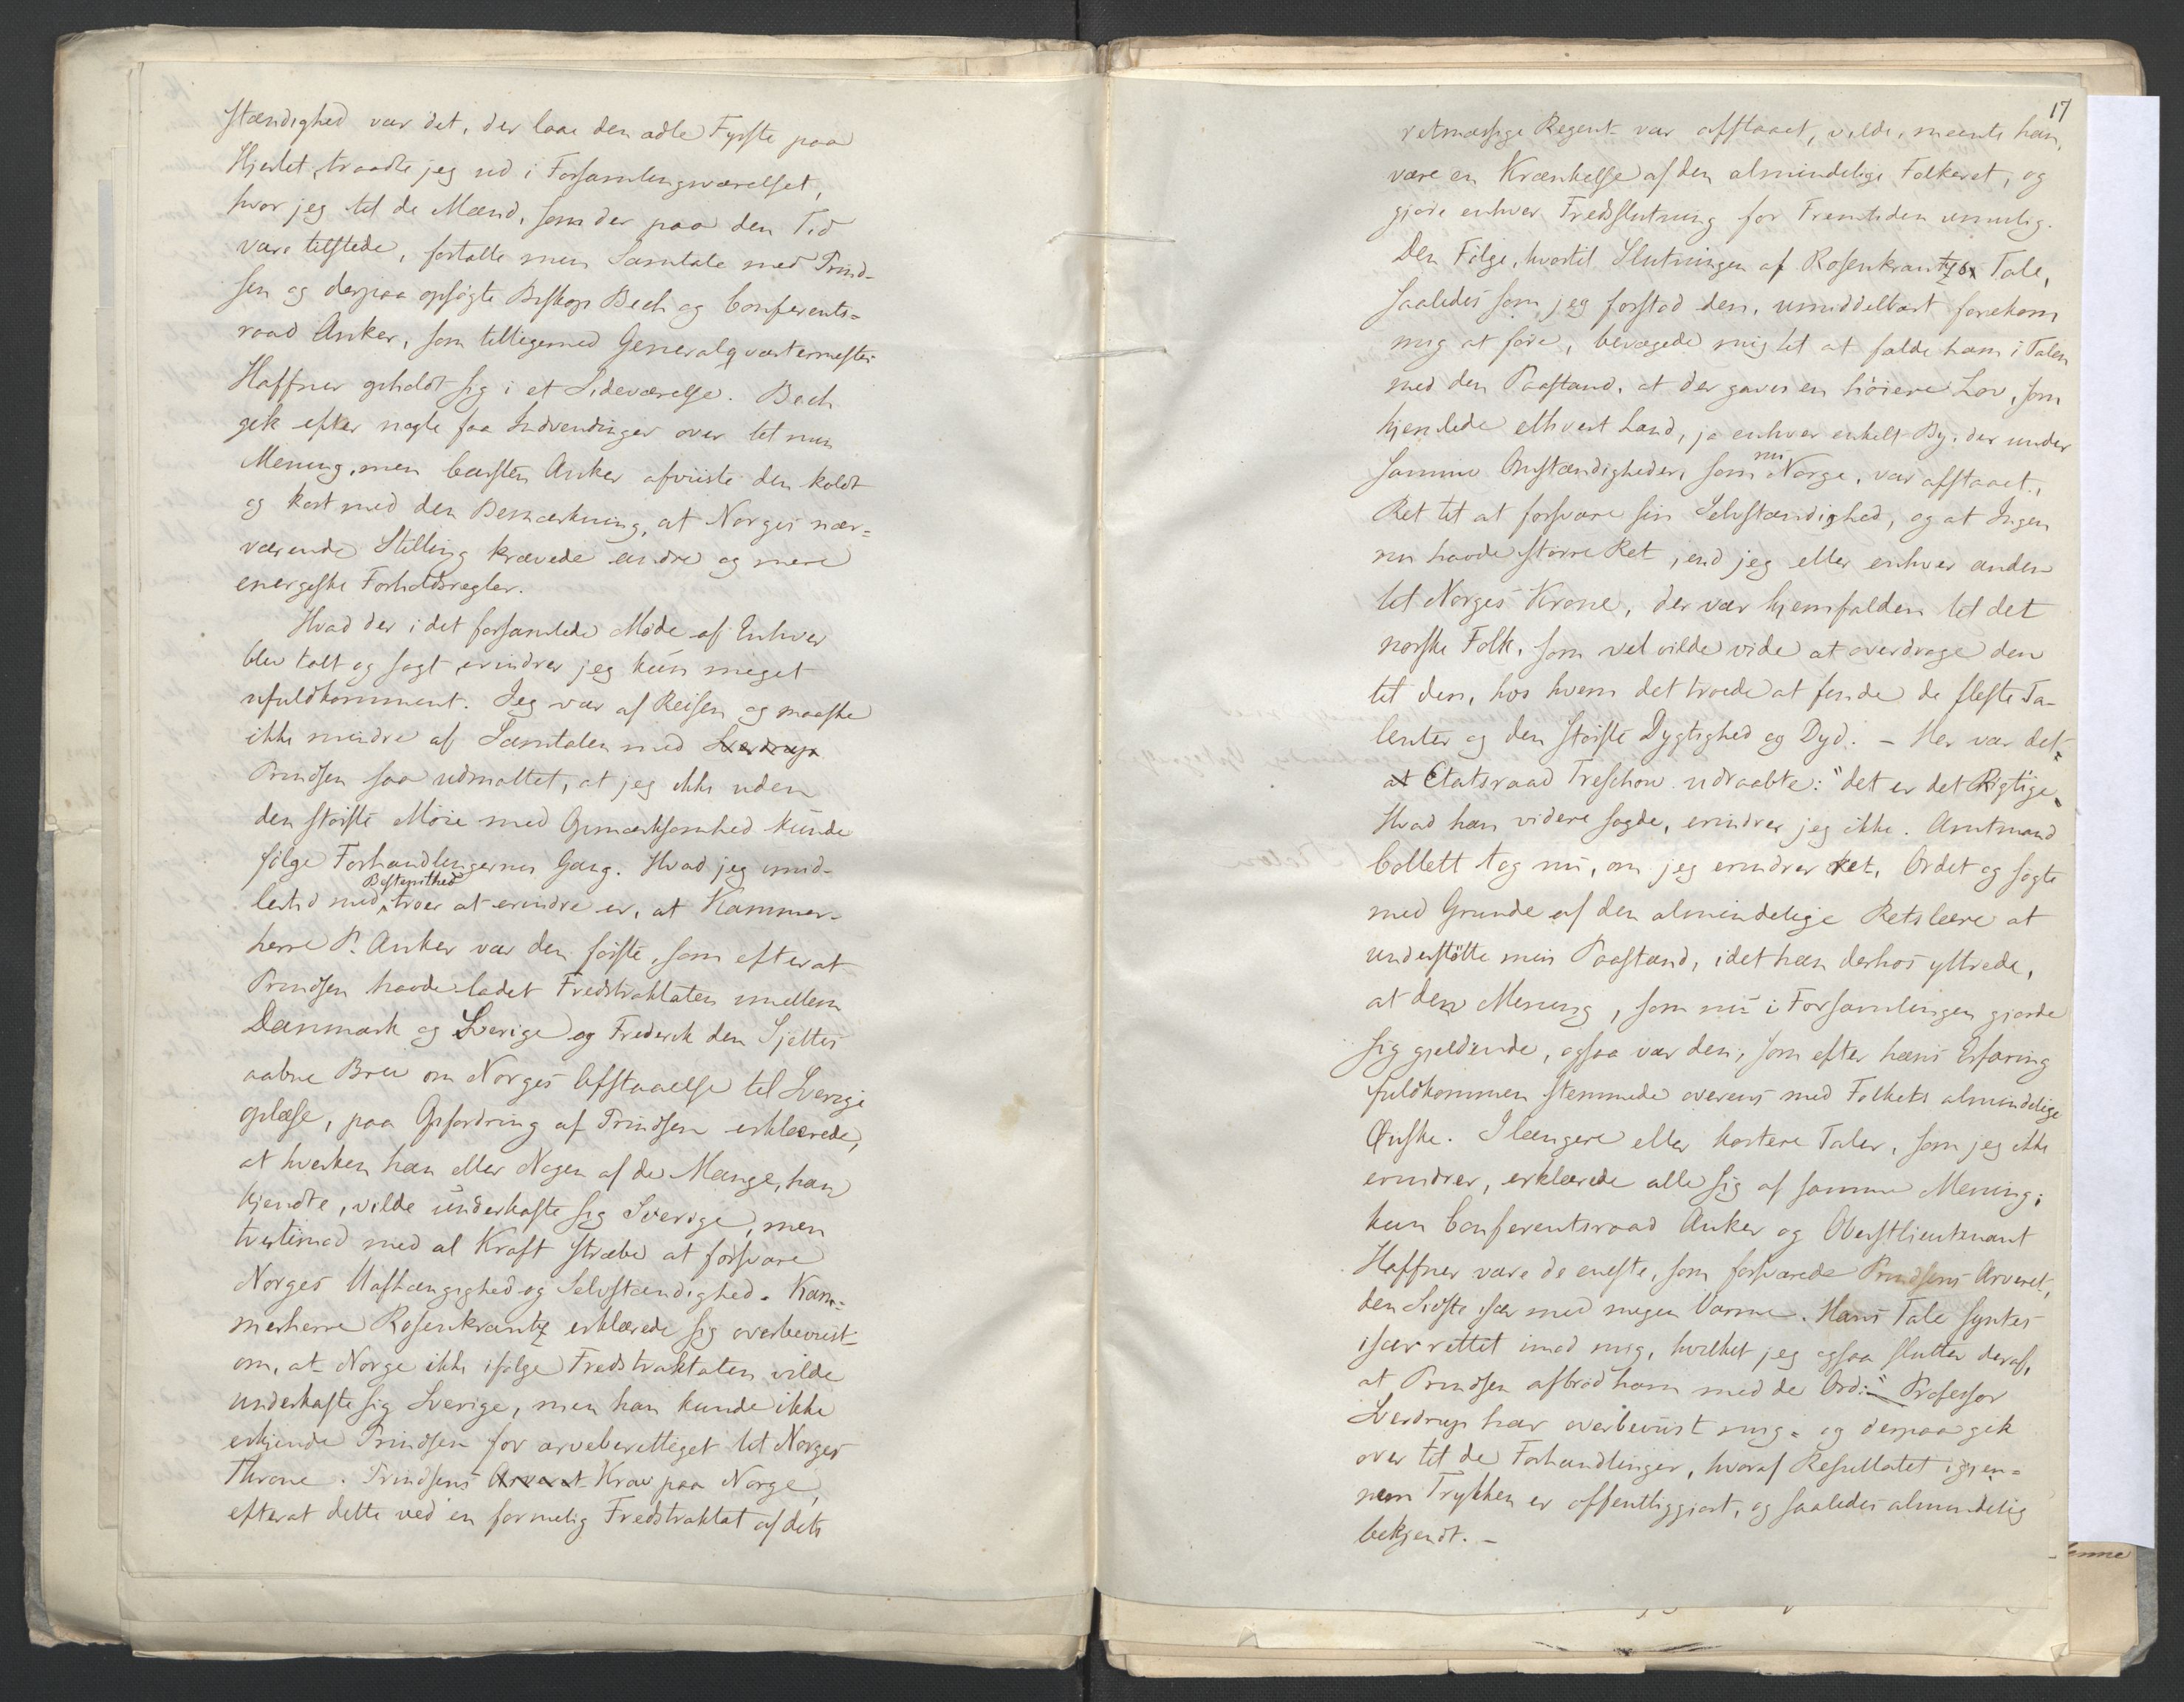 stændighed var det, der laae den ædle Fyrste paa
Hjertet, traadte jeg ud i Forsamlingsværelset,
hvor jeg til de Mænd, som der paa den Tid
vare tilstede, fortalte min Samtale med Prind-
sen og derpaa opsøgte Biskop Bech og Conferents-
raad Anker, som tilligemed Generalqvarteermester
Haffner opholdt sig i et Sideværelse. Bech
gik efter nogle faa Indvendinger over til min
Mening, men Carsten Anker afviiste den koldt
og kort med den Bemærkning, at Norges nær-
værende Stilling krævede andre og mere
energiske Forholdsregler.
Hvad der i det forsamlede Møde af Enhver
blev talt og sagt erindrer jeg kun meget
ufuldkomment. Jeg var af Reisen og maaske
ikke mindre af Samtalen med Sverdrup
Prindsen saa udmattet, at jeg ikke uden
den største Møie med Opmærksomhed kunde
følge Forhandlingernes Gang. Hvad jeg imid-
Bestemthed
lertid med troer at erindre er, at Kammer-
herre P. Anker var den første, som efterat
Prindsen havde ladet Fredstraktaten mellem
Danmark og Sverige og Frederik den Sjettes
aabne Brev om Norges Afstaaelse til Sverige
oplæse, paa Opfordring af Prindsen erklærede,
at hverken han eller Nogen af de Mange, han
kjendte, vilde underkaste sig Sverige, men
tvertimod med al Kraft stræbe at forsvare
Norges Uafhængighed og Selvstændighed. Kam-
merherre Rosenkrantz erklærede sig overbeviist
om, at Norge ikke ifølge Fredstraktaten vilde
underkaste sig Sverige, men han kunde ikke
erkjende Prindsen for arveberettiget til Norges
Throne. Prindsens Arveret Krav paa Norge,
efterat dette ved en formelig Fredstraktat af dets
17
retmæssige Regent var afstaaet, vilde, meente han,
være en Krænkelse af den almindelige Folkeret, og
gjøre enhver Fredsslutning for Fremtiden umulig.
Den Følge, hvortil Slutningen af Rosenkrantzes Tale,
saaledes som jeg forstod den, umiddelbart forekom
mig at føre, bevægede mig til at falde ham i Talen
med den Paastand, at der gaves en høiere Lov, som
hjemlede ethvert Land, ja enhver enkelt By, der under
nu
samme Omstændigheder, som Norge, var afstaaet,
Ret til at forsvare sin Selvstændighed, og at Ingen
nu havde større Ret, end jeg eller enhver anden
til Norges Krone, der var hjemfalden til det
norske Folk, som vel vilde vide at overdrage den
til den, hos hvem det troede at finde de fleste Ta-
lenter og den største Dygtighed og Dyd. – Her var det
at Etatsraad Treschow udraabte: "det er det Rigtige"
Hvad han videre sagde, erindrer jeg ikke. Amtmand
Collett tog nu, om jeg erindrer ret, Ordet og søgte
med Grunde af den almindelige Retslære at
understøtte min Paastand, idet han derhos yttrede,
at den Mening, som nu i Forsamlingen gjorde
sig gjeldende, ogsaa var den, som efter hans Erfaring
fuldkommen stemmede overens med Folkets almindelige
Ønske. I længere eller kortere Taler, som jeg ikke
erindrer, erklærede alle sig af samme Mening;
kun Conferentsraad Anker og Oberstlieutenant
Haffner vare de eneste, som forsvarede Prindsens Arveret,
den Sidste især med megen Varme. Hans Tale syntes
især rettet imod mig, hvilket jeg ogsaa slutter deraf,
at Prindsen afbrød ham med de Ord: "Professor
Sverdrup har overbeviist mig" og derpaa gik
over til de Forhandlinger, hvoraf Resultatet igjen-
nem Trykken er offentliggjort, og saaledes almindelig
bekjendt. –